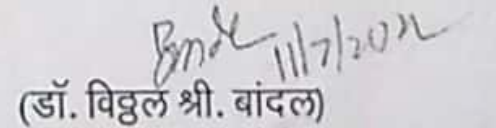 11/7/202
(डॉ. विठ्ठल श्री. बांदल)